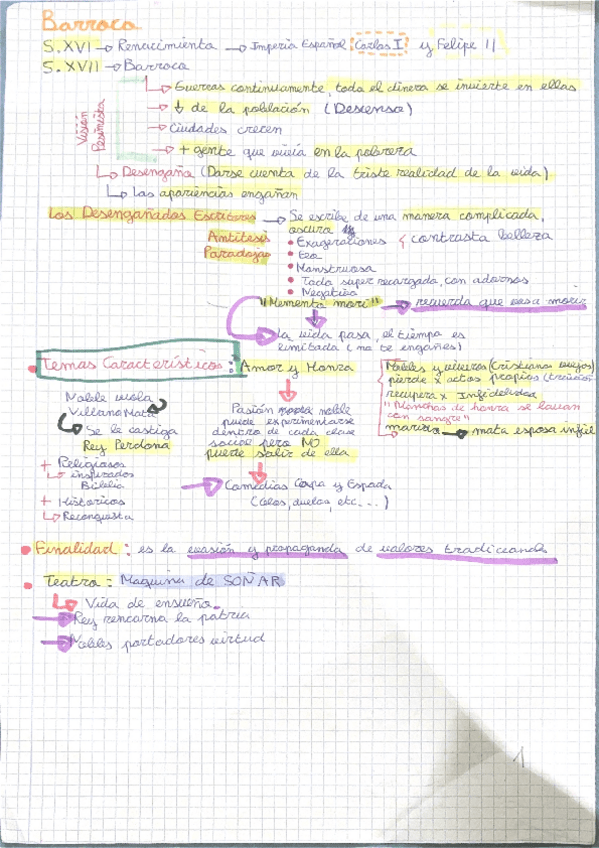 Barroco
S.XVI → Renacimiento → Imperio Español Carlos I y Felipe II
S. XVII → Barroco
Visión Pesimista
→ Guerras continuamente, toda el dinero se invierte en ellas
→ ↓ de la población (Descenso)
→ Ciudades crecen
→ + gente que vivía en la pobreza
→ Desengaño (Darse cuenta de la triste realidad de la vida)
→ Las apariencias engañan
Los Desengañados Escritores → Se escribe de una manera complicada,
oscura
Antítesis
Paradojas
• Exageraciones { contrasta belleza
• Feo
• Monstruoso
• Todo super recargado, con adornos
• Negativo
"Memento mori" → recuerda que vas a morir
→ la vida pasa, el tiempo es
limitado (no te engañes)
• Temas Característicos: Amor y Honra
Noble viola
Villano Mata
→ Se le castiga
Rey Perdona
+ Religiosos
→ inspirados
Biblia
+ Históricos
→ Reconquista
Pasión noble
puede experimentarse
dentro de cada clase
social pero NO
puede salir de ella
→ Comedias Capa y Espada
(Celos, duelos, etc...)
Nobles y (Cristianos viejos)
pierde x actos propios (traición)
recupera x Infidelidad
"Manchas de honra se lavan
con sangre"
marido → mata esposa infiel
• Finalidad: es la evasión y propaganda de valores tradicionales
• Teatro: Maquina de SOÑAR
→ Vida de ensueño
→ Rey encarna la patria
→ Nobles portadores virtud
1